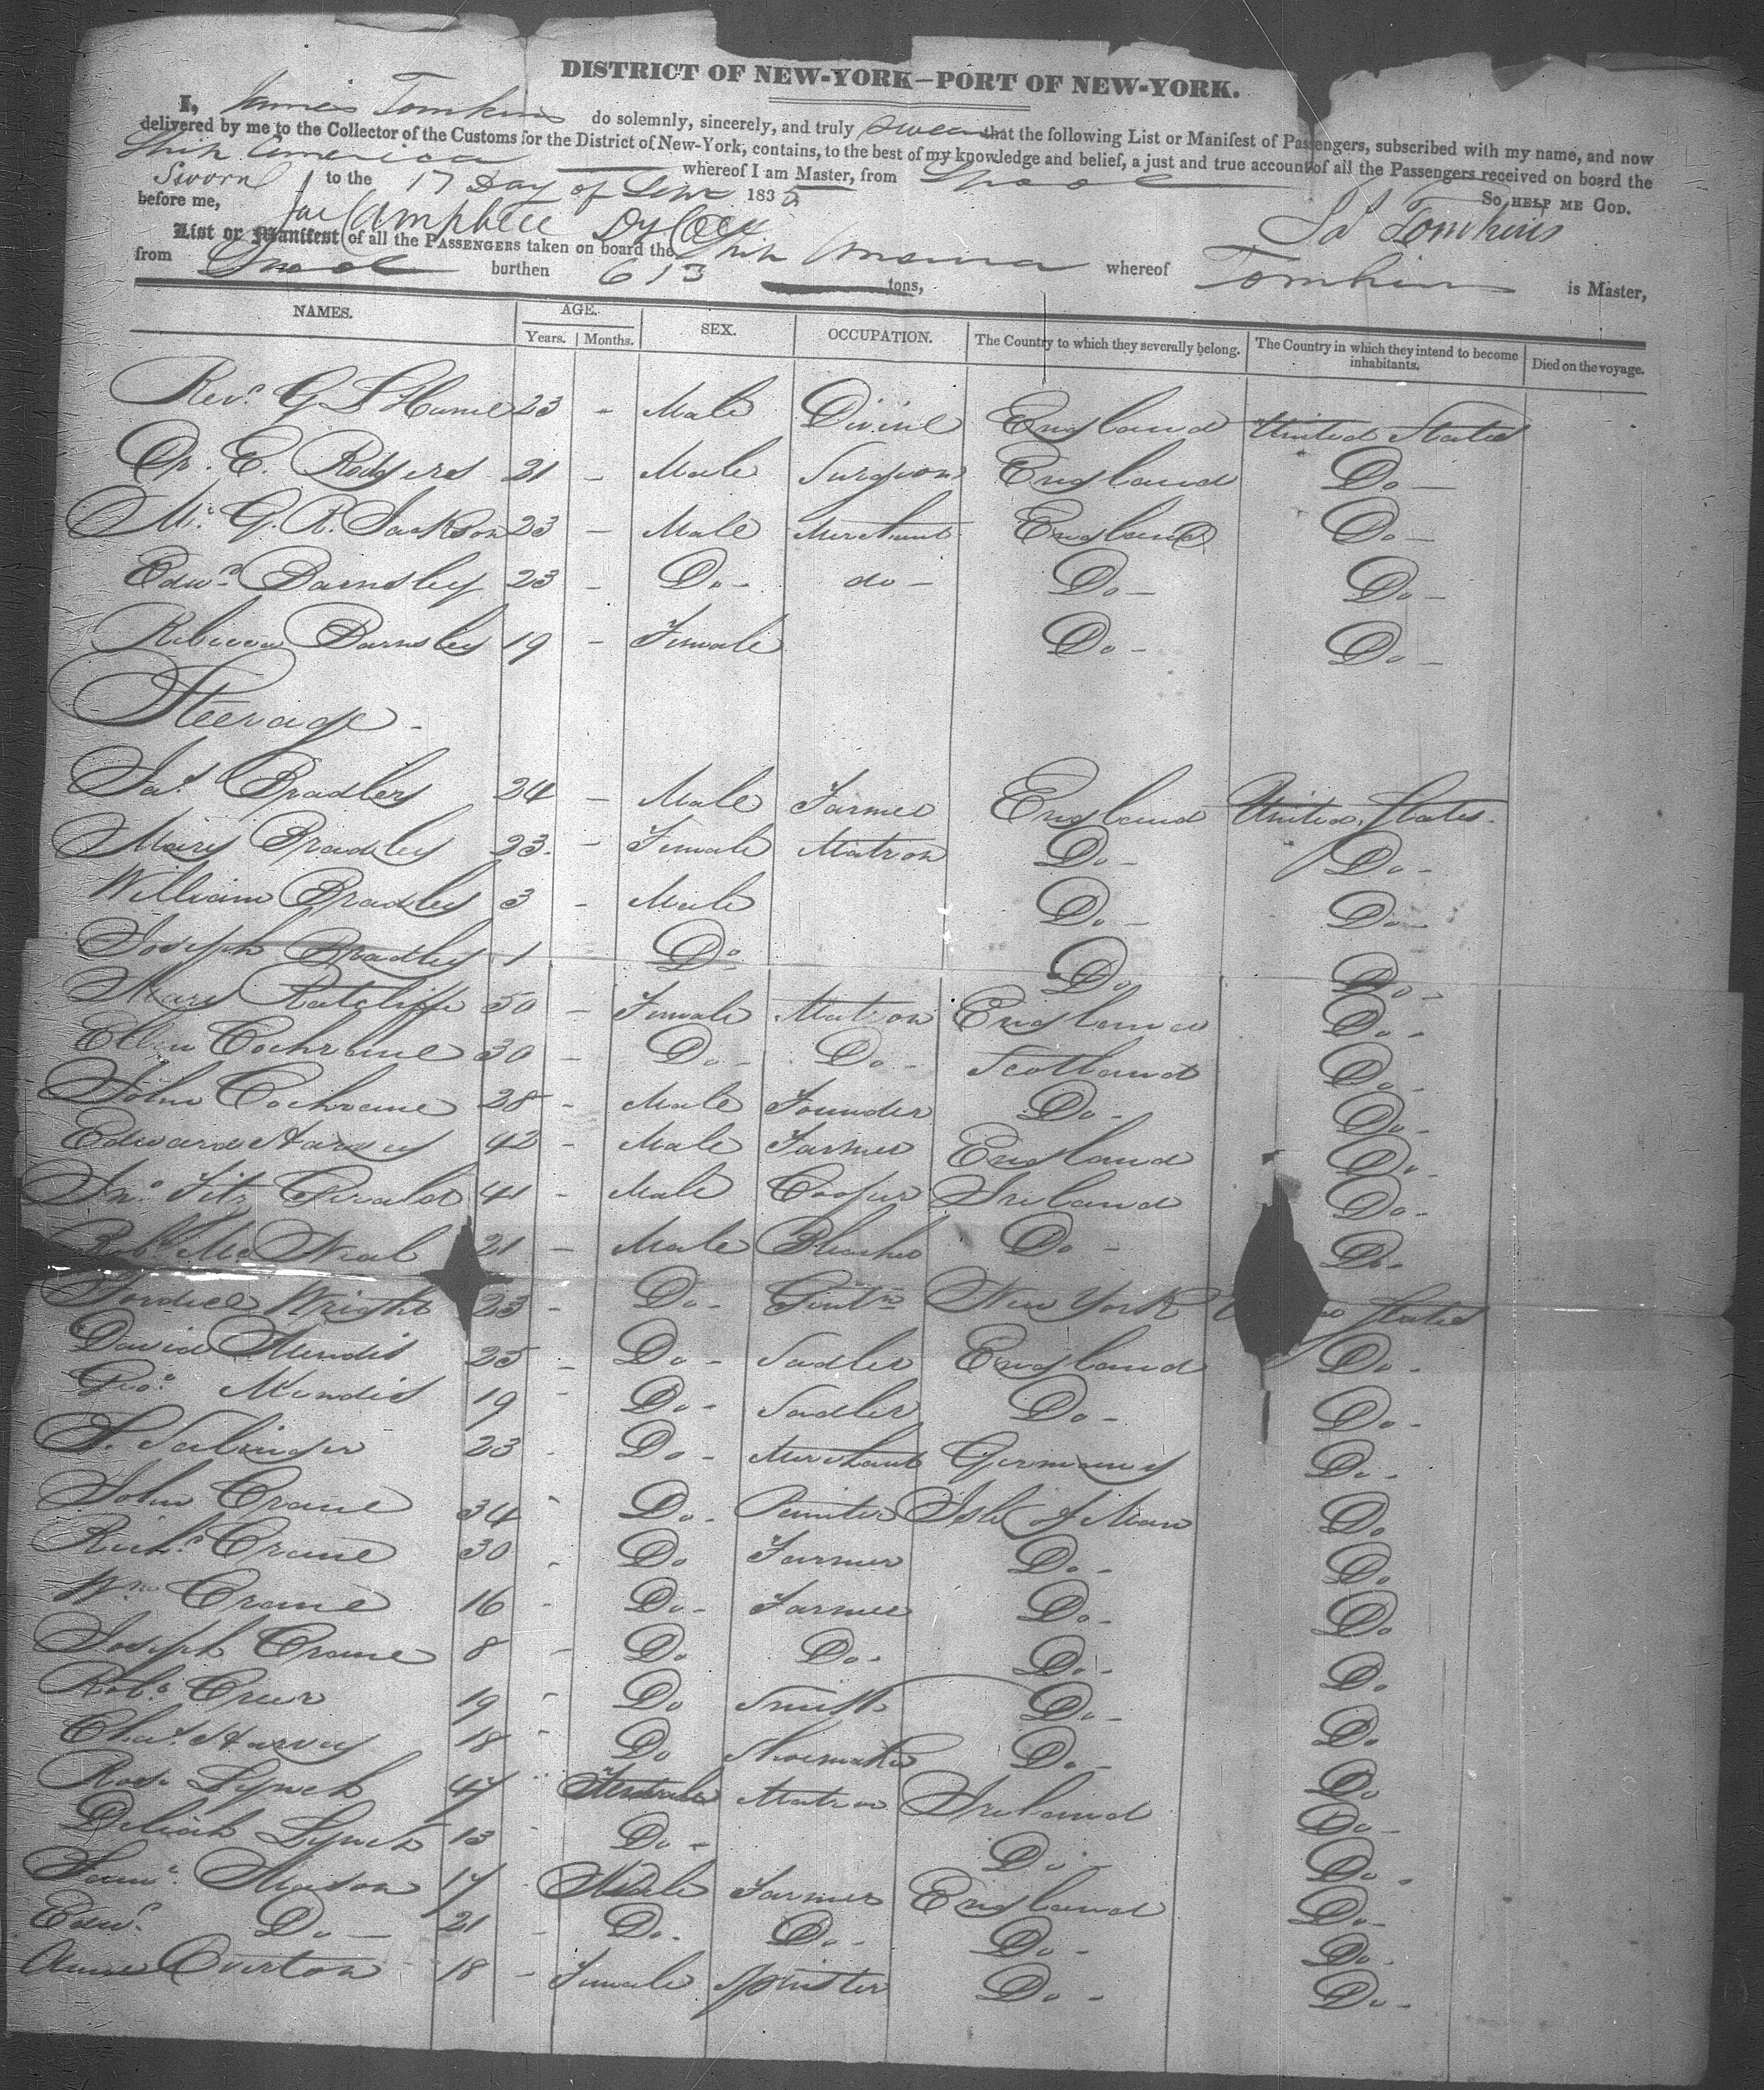 DISTRICT OF NEW-YORK—PORT OF NEW-YORK.
I, James Tomkins do solemnly, sincerely, and truly swear that the following List or Manifest of Passengers, subscribed with my name, and now
delivered by me to the Collector of the Customs for the District of New-York, contains, to the best of my knowledge and belief, a just and true account of all the Passengers received on board the
Ship America whereof I am Master, from
Sworn to the 17 Day of 1835 So HELP ME GOD.
before me, Campbell Dy Coll Ja Tomkins
List or Manifest of all the PASSENGERS taken on board the Ship America whereof Tomkins
from burthen 613 tons, is Master,
NAMES. AGE. SEX. OCCUPATION. The Country to which they severally belong. The Country in which they intend to become inhabitants. Died on the voyage.
Years. Months.
Revd. G S Hume 23 - Male Divine England United States
Dr. E. Rodgers 21 - Male Surgeon England Do -
Mr. G. R. Jackson 23 - Male Merchant England Do -
Edwd. Barnsley 23 - Do - do - Do - Do -
Rebecca Barnsley 19 - Female Do - Do -
Steerage -
Jas. Bradley 24 - Male Farmer England United States -
Mary Bradley 23 - Female Matron Do - Do -
William Bradley 3 - Male Do - Do -
Joseph Bradley 1 - Do Do Do -
Mary Ratcliffe 50 - Female Matron England Do -
Ellen Cochrane 30 - Do - Do - Scotland Do -
John Cochrane 28 - Male Founder Do - Do -
Edward Harvey 42 - Male Farmer England Do -
Jno. Fitz Gerald 41 - Male Cooper Ireland Do -
Robt. Mc Neal 21 - Male Bleacher Do - Do -
Wright 23 - Do - Gentn New York States
David Mendis 25 - Do - Sadler England Do -
Geo. Mendis 19 - Do - Sadler Do - Do -
S. Salinger 23 - Do - Merchant Germany Do -
John Crane 34 - Do - Painter Isle of Man Do
Richd. Crane 30 - Do Farmer Do - Do
Wm Crane 16 - Do - Farmer Do - Do
Joseph Crane 8 - Do Do - Do - Do
Robt. Creer 19 - Do Smith Do - Do
Chas. Harvey 18 - Do Shoemaker Do - Do
Rose Lynch 47 - Female Matron Ireland Do
Deliah Lynch 13 - Do - Do - Do -
Saml. Mason 17 - Male Farmer England Do -
Edwd. Do - 21 - Do - Do - Do - Do -
Anne Overton 18 - Female Spinster Do - Do -